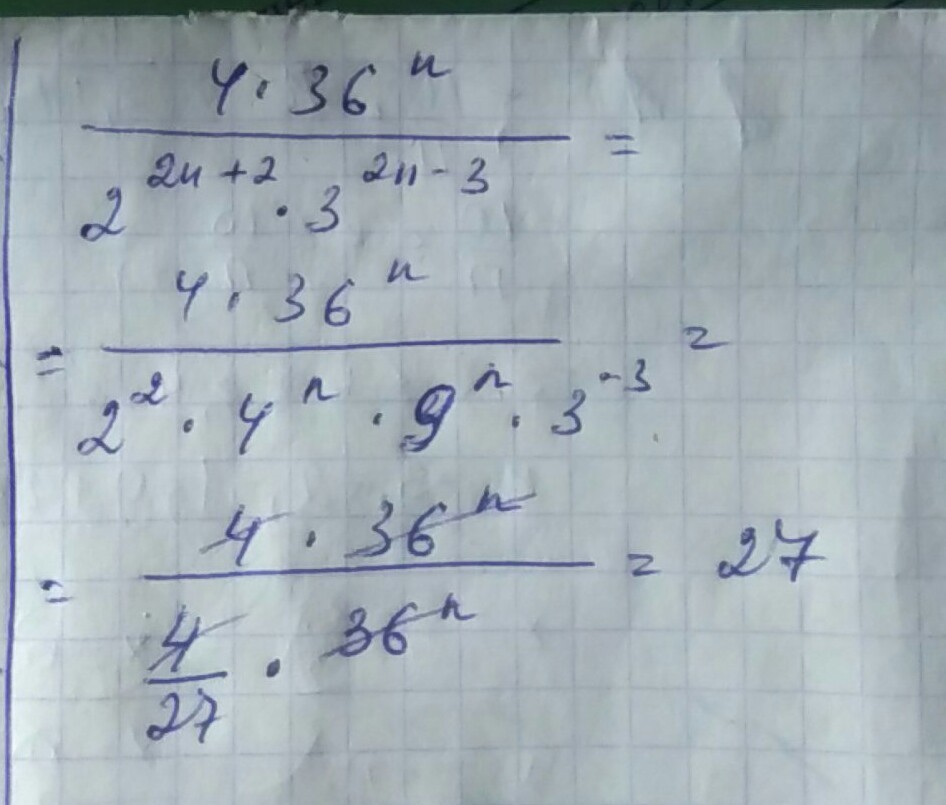 4 · 36^n
=
2^{2n+2} · 3^{2n-3}
4 · 36^n
= =
2^2 · 4^n · 9^n · 3^{-3}
4 · 36^n
= = 27
4/27 · 36^n